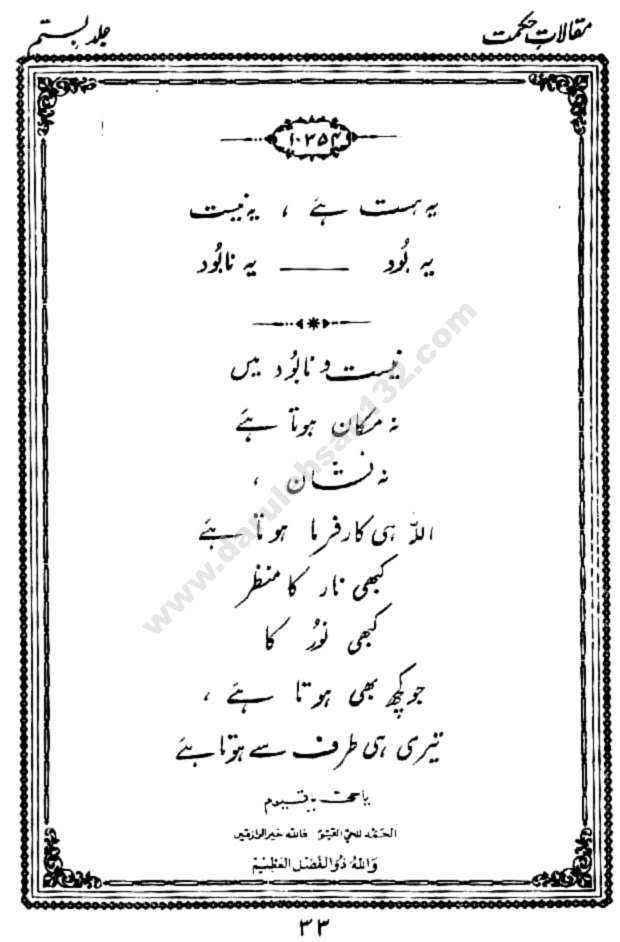 مقالاتِ حکمت
جلد بستم
۱۰۳۵۴
یہ ہست ہے ، یہ نیست
یہ بُود ــــ یہ نابُود
نیست و نابُود میں
نہ مکان ہوتا ہے
نہ نشان ،
اللہ ہی کارفرما ہوتا ہے
کبھی نار کا منظر
کبھی نُور کا
جو کچھ بھی ہوتا ہے ،
تیری ہی طرف سے ہوتا ہے
یا حی یا قیوم
الحمد للحی القیوم فاللہ خیر الرازقین
واللہ ذوالفضل العظیم
۳۳
www.darulehsan132.com